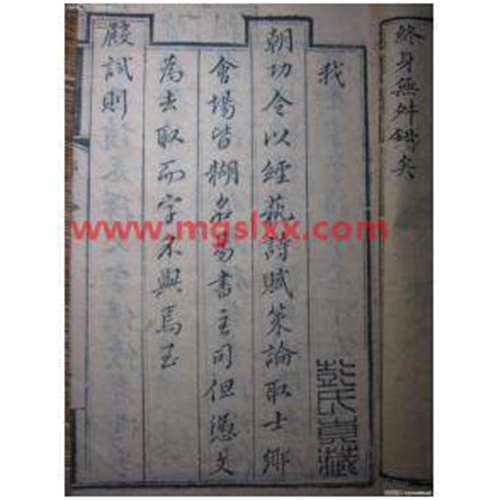 終身無舛錯矣
我
朝功令以經藝詩賦策論取士鄉
會場皆糊名易書主司但憑文
為去取而字不與焉至
殿試則
www.mgslxx.com